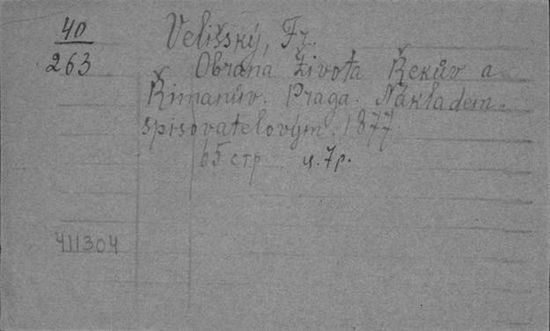 40
263
Velišský, Fr.
Obrana života Řekův a
Řimanův. Praga. Nákladem
spisovatelovým. 1877.
65 стр ц. 7 р.
411304